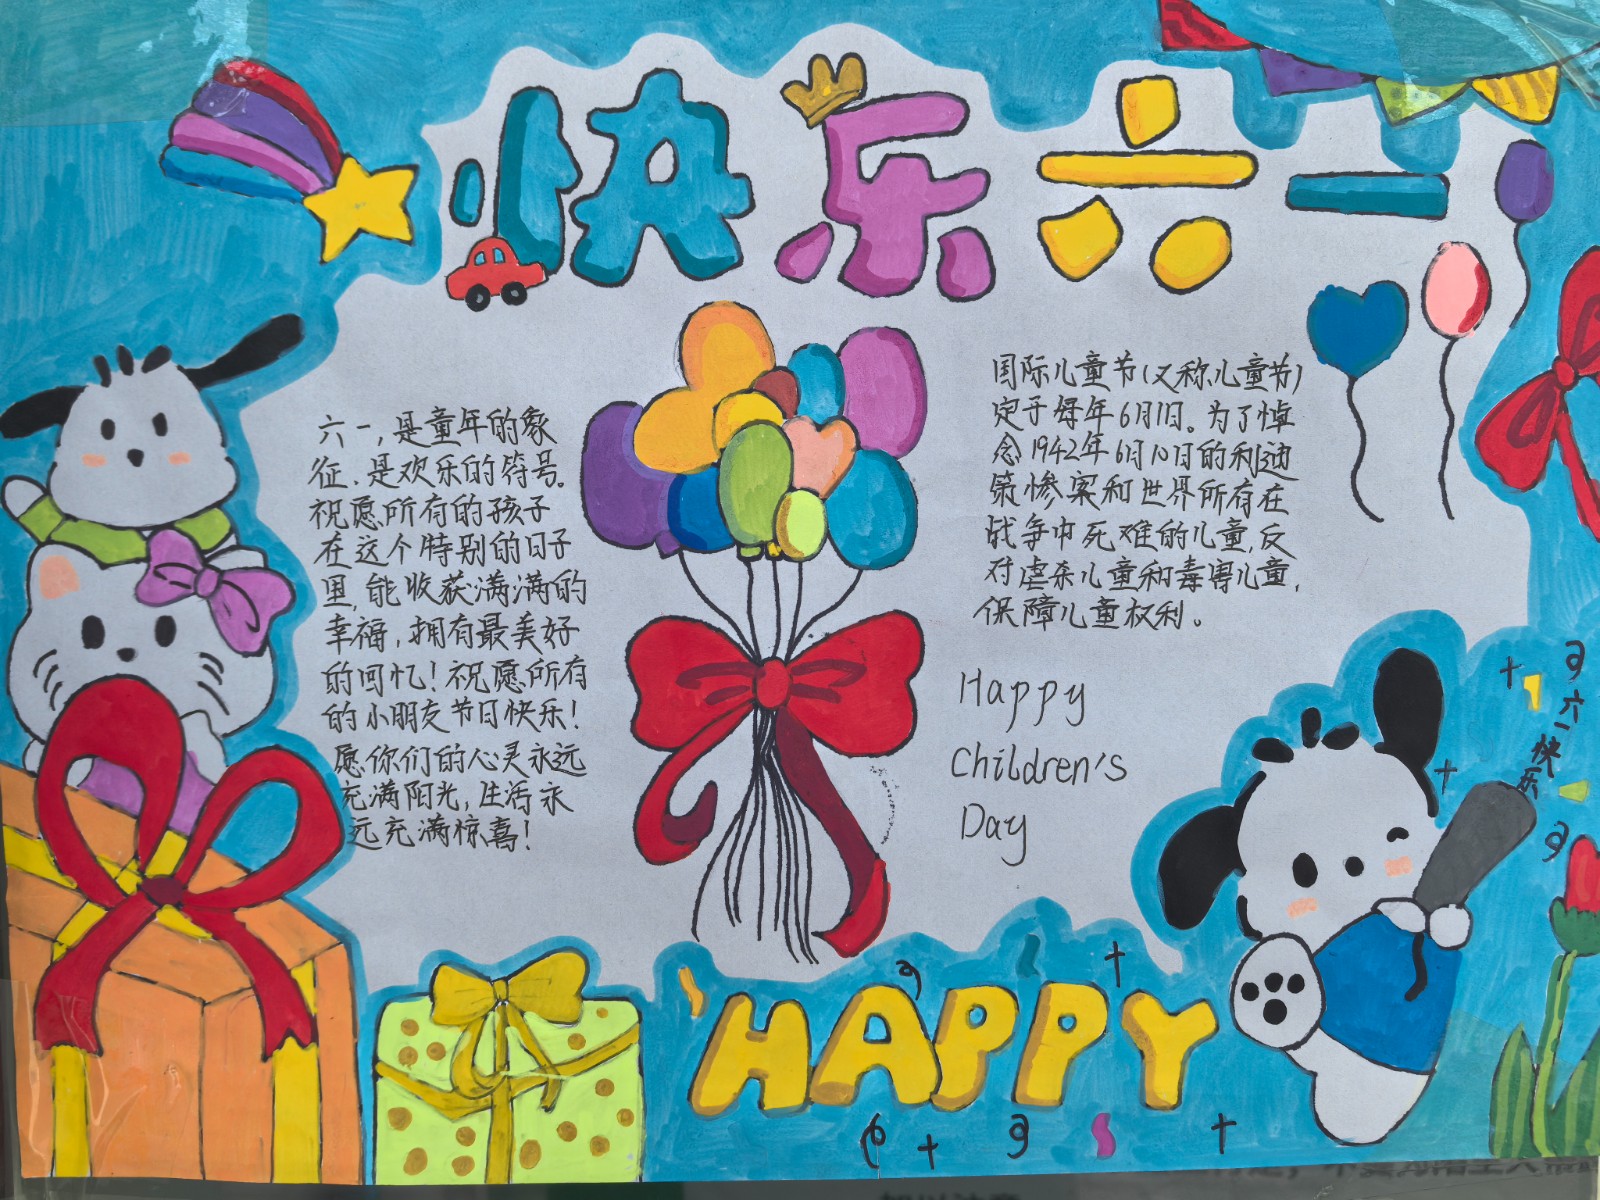 快乐六一
六一,是童年的象
征,是欢乐的符号。
祝愿所有的孩子
在这个特别的日子
里,能收获满满的
幸福,拥有最美好
的回忆!祝愿所有
的小朋友节日快乐!
愿你们的心灵永远
充满阳光,生活永
远充满惊喜!
国际儿童节(又称儿童节)
定于每年6月1日。为了悼
念1942年6月10日的利迪
策惨案和世界所有在
战争中死难的儿童,反
对虐杀儿童和毒害儿童,
保障儿童权利。
Happy
Children's
Day
六一快乐
HAPPY